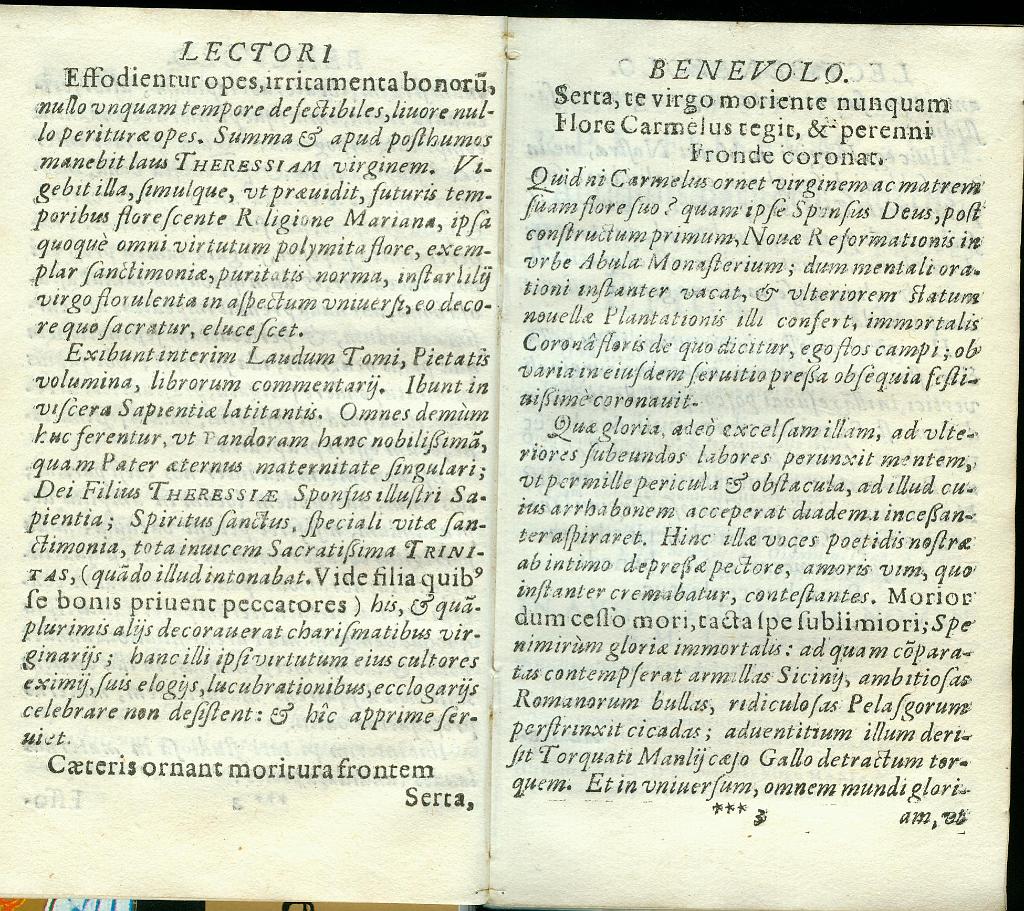 LECTORI
Effodientur opes, irritamenta bonorũ,
nullo vnquam tempore defectibiles, liuore nul-
lo perituræ opes. Summa & apud posthumos
manebit laus THERESSIAM virginem. Vi-
gebit illa, simulque, vt præuidit, futuris tem-
poribus florescente Religione Mariana, ipsa
quoquè omni virtutum polymita flore, exem-
plar sanctimoniæ, puritatis norma, instar lilij
virgo florulenta in aspectum vniuersi, eo deco-
re quo sacratur, elucescet.
Exibunt interim Laudum Tomi, Pietatis
volumina, librorum commentarij. Ibunt in
viscera Sapientiæ latitantis. Omnes demum
huc ferentur, vt Pandoram hanc nobilißimã,
quam Pater æternus maternitate singulari;
Dei Filius THERESSIÆ Sponsus illustri Sa-
pientia; Spiritus sanctus, speciali vitæ san-
ctimonia, tota inuicem Sacratißima TRINI-
TAS, (quãdo illud intonabat. Vide filia quibꝰ
se bonis priuent peccatores) his, & quã-
plurimis alijs decorauerat charismatibus vir-
ginarijs; hanc illi ipsi virtutum eius cultores
eximij, suis elogijs, lucubrationibus, ecclogarijs
celebrare non desistent: & hîc apprime ser-
uiet.
Cæteris ornant moritura frontem
Serta,
BENEVOLO.
Serta, te virgo moriente nunquam
Flore Carmelus tegit, & perenni
Fronde coronat.
Quid ni Carmelus ornet virginem ac matrem
suam flore suo? quam ipse Sponsus Deus, post
constructum primum, Nouæ Reformationis in
vrbe Abula Monasterium; dum mentali ora-
tioni instanter vacat, & vlteriorem statum
nouellæ Plantationis illi confert, immortalis
Coronâ floris de quo dicitur, ego flos campi; ob
varia in eiusdem seruitio preßa obsequia festi-
uißimè coronauit.
Quæ gloria, adeò excelsam illam, ad vlte-
riores subeundos labores perunxit mentem,
vt per mille pericula & obstacula, ad illud cu-
ius arrhabonem acceperat diadema inceßan-
ter aspiraret. Hinc illæ voces poetidis nostræ
ab intimo depreßæ pectore, amoris vim, quo
instanter cremabatur, contestantes. Morior
dum cesso mori, tacta spe sublimiori; Spe
nimirùm gloriæ immortalis: ad quam cõpara-
tas contempserat armillas Sicinij, ambitiosas
Romanorum bullas, ridiculosas Pelasgorum
perstrinxit cicadas; aduentitium illum deri-
sit Torquati Manlij cæso Gallo detractum tor-
quem. Et in vniuersum, omnem mundi glori-
*** 3 am, vt